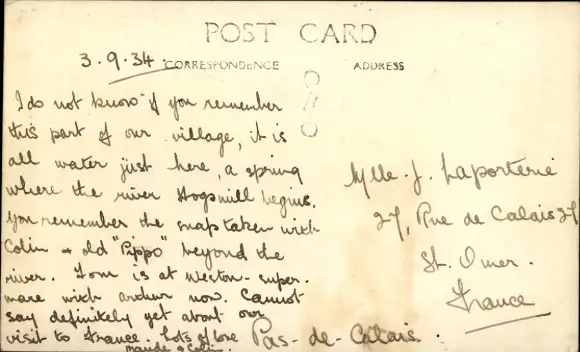 POST CARD
3.9.34
CORRESPONDENCE
ADDRESS
I do not know if you remember
this part of our village, it is
all water just here, a spring
where the river Hogsmill begins.
You remember the snap taken with
Colin & old "Pippo" beyond the
river. Tom is at Weston-super-
mare with Arthur now. Cannot
say definitely yet about our
visit to France. Lots of love
Maude & Colin.
Mlle. J. Laporterie
27, Rue de Calais 27
St. Omer.
France
Pas-de-Calais.